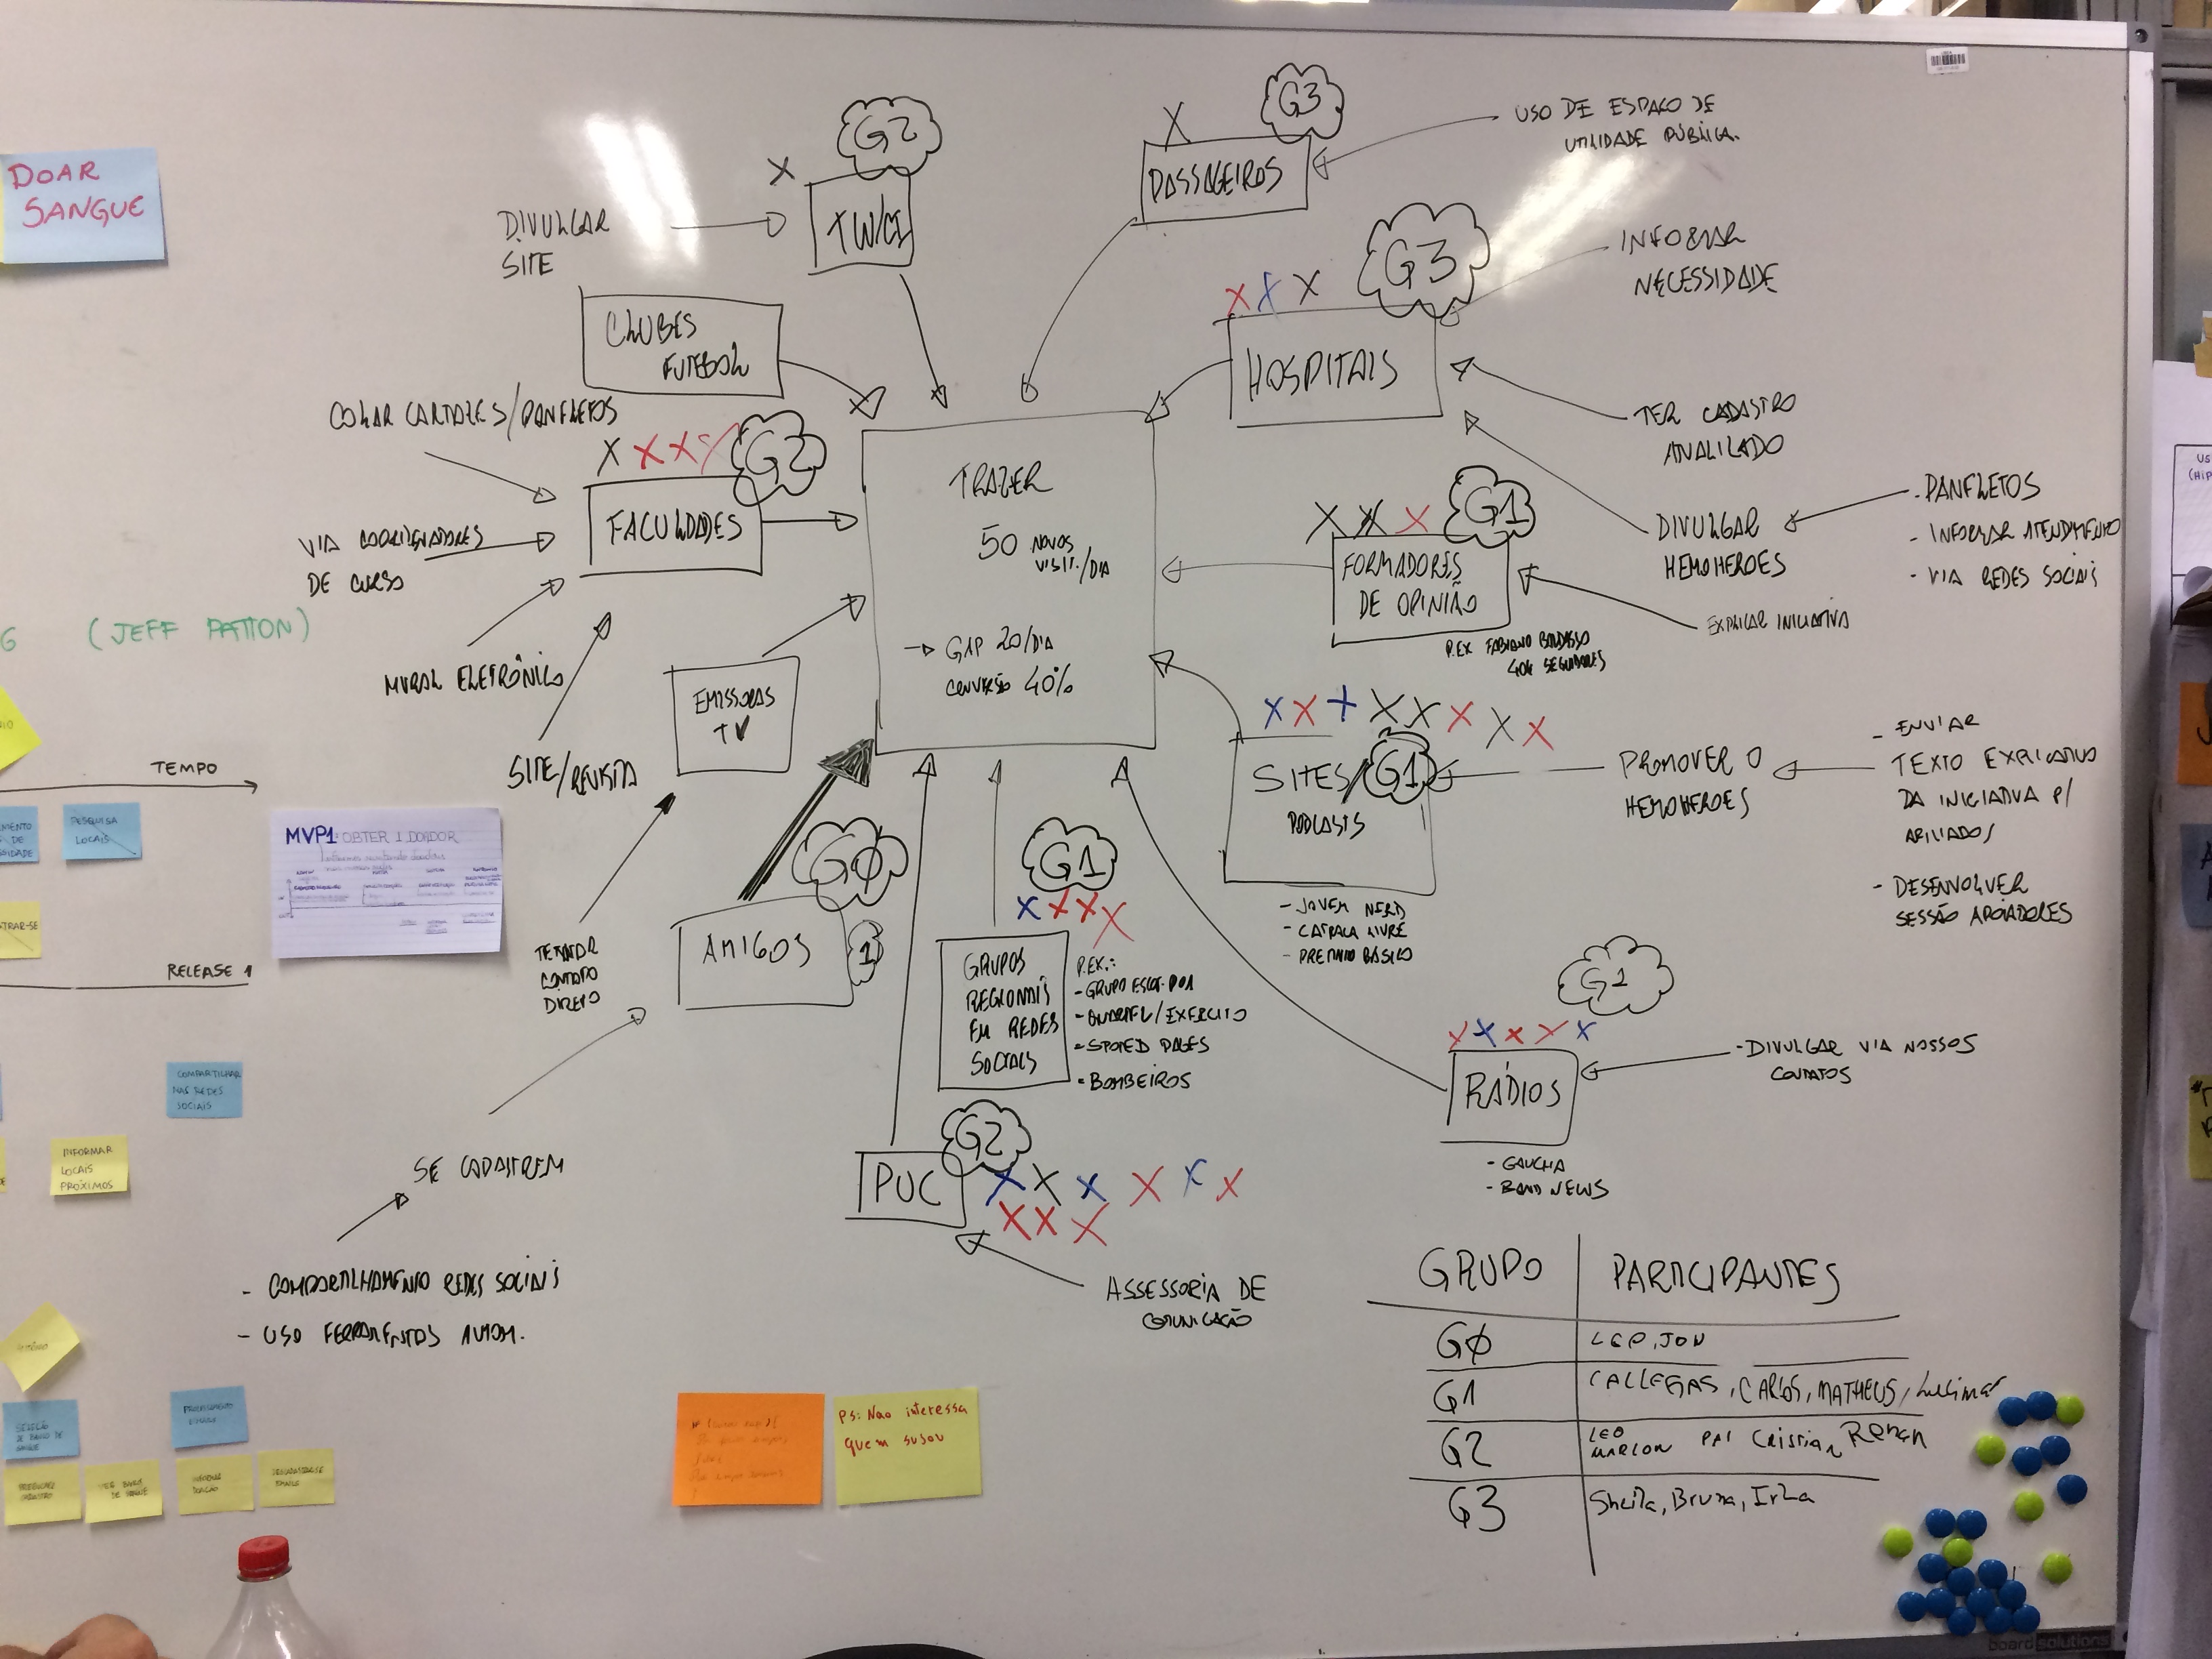 DOAR
SANGUE
G (JEFF PATTON)
TEMPO
PESQUISA
LOCAIS
MVP1: OBTER 1 DOADOR
TRAR-SE
RELEASE 1
COMPARTILHAR
NAS REDES
SOCIAIS
INFORMAR
LOCAIS
PRÓXIMOS
SELEÇÃO
DE BANCO DE
SANGUE
DIVULGAR
SITE
X
G2
TW/
X
G3
PASSAGEIROS
USO DE ESPAÇO DE
UTILIDADE PÚBLICA.
CLUBES
FUTEBOL
X X X
G3
HOSPITAIS
INFORMAR
NECESSIDADE
TER CADASTRO
ANALIZADO
DIVULGAR
HEMOHEROES
- PANFLETOS
- INFORMAR ATENDIMENTO
- VIA REDES SOCIAIS
COLAR CARTAZES/PANFLETOS
X X X X
G2
FACULDADES
VIA COORDENADORES
DE CURSO
MURAL ELETRÔNICO
SITE/REVISTA
TRAZER
50 NOVOS
VISIT./DIA
→ GAP 20/DIA
CONVERSÃO 40%
X X X
G1
FORMADORES
DE OPINIÃO
P.EX FABIANO BALDASSO
40K SEGUIDORES
EXPLICAR INICIATIVA
EMISSORAS
TV
TENTAR
CONTATO
DIRETO
X X X X X X X X
SITES/
G1
PODCASTS
- JOVEM NERD
- CATRACA LIVRE
- PRIMEIRO BÁSICO
PROMOVER O
HEMOHEROES
- ENVIAR
TEXTO EXPLICATIVO
DA INICIATIVA P/
AFILIADOS
- DESENVOLVER
SESSÃO APOIADORES
GØ
AMIGOS
1
SE CADASTREM
- COMPARTILHAMENTO REDES SOCIAIS
- USO FERRAMENTAS AUTOM.
G1
X X X X
GRUPOS
REGIONAIS
EM REDES
SOCIAIS
P.EX.:
- GRUPO ESCOT. POA
- /EXERCITO
- SPOTED PAGES
- BOMBEIROS
G1
X X X X X
RÁDIOS
- GAUCHA
- BAND NEWS
- DIVULGAR VIA NOSSOS
CONTATOS
G2
PUC
X X X X X X
X X X
ASSESSORIA DE
COMUNICAÇÃO
GRUPO PARTICIPANTES
GØ LEO, JON
G1 CALLEGAS, CARLOS, MATHEUS,
G2 LEO
MARLON PAI Cristian, Renan
G3 Sheila, Bruna,
PS: Nao interessa
quem sujou
boardsolutions